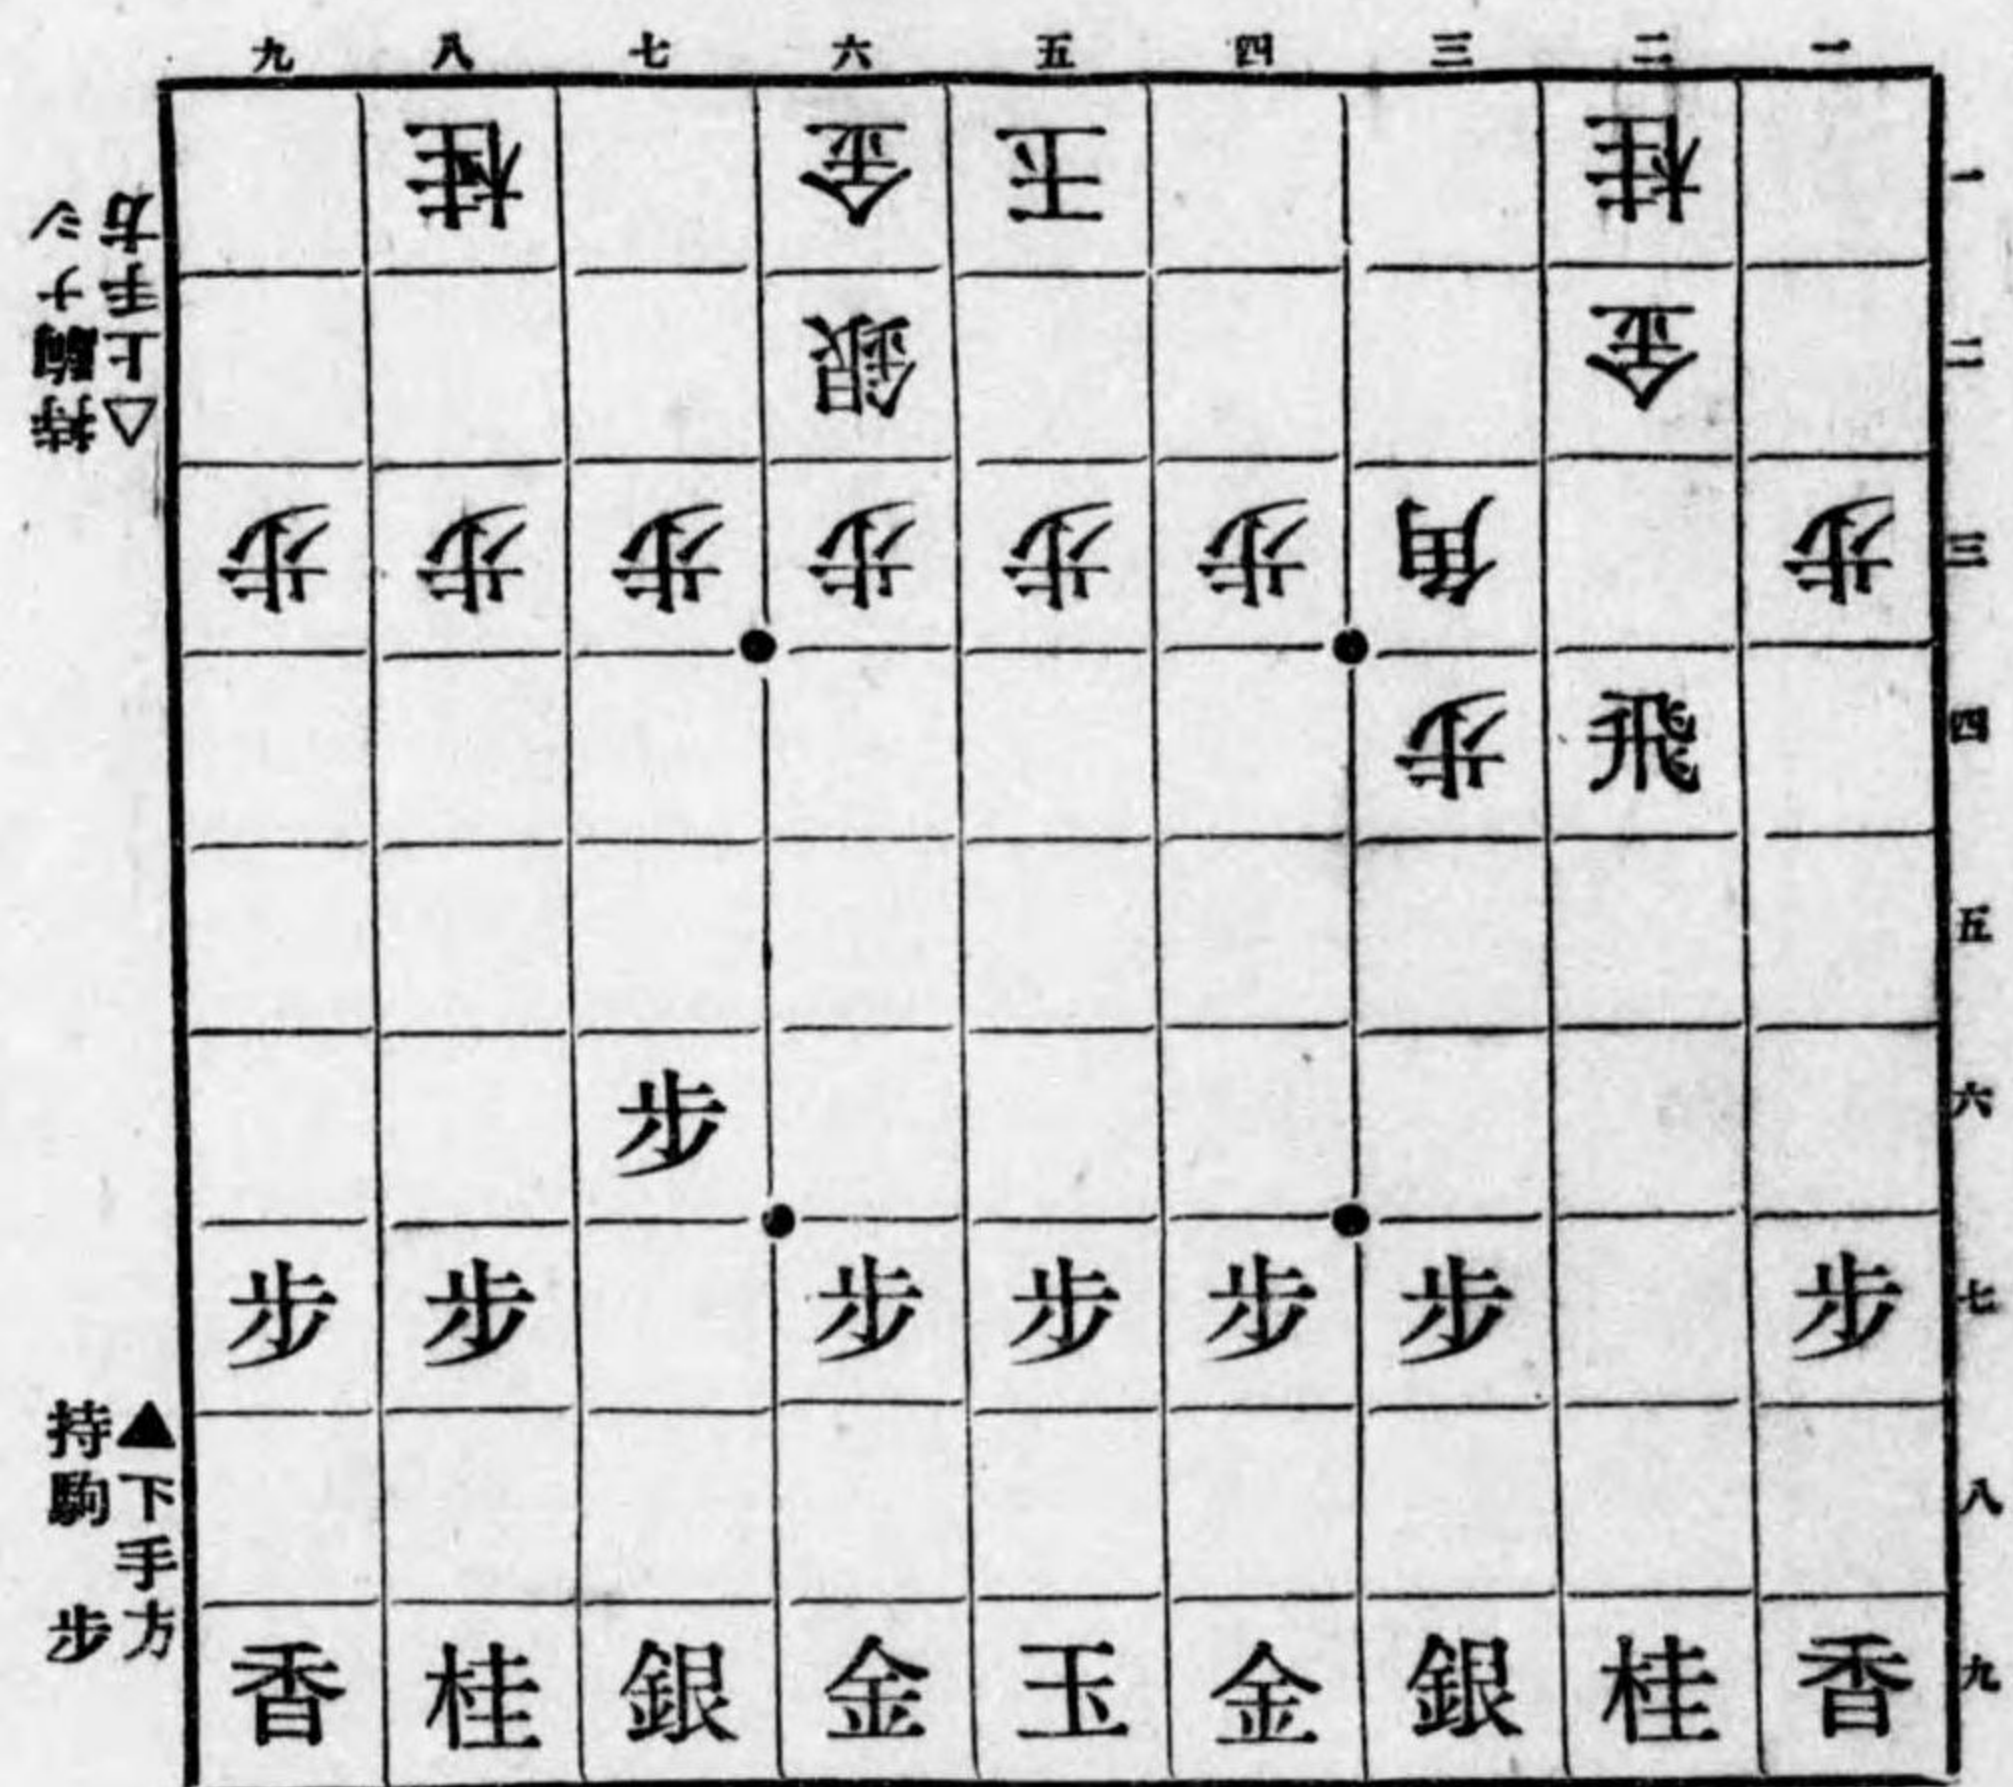 九 八 七 六 五 四 三 二 一
桂 金 玉 桂 一
銀 金 二
歩 歩 歩 歩 歩 歩 角 歩 三
歩 飛 四
五
歩 六
歩 歩 歩 歩 歩 歩 歩 七
八
香 桂 銀 金 玉 金 銀 桂 香 九
△上手方
持駒ナシ
▲下手方
持駒 歩